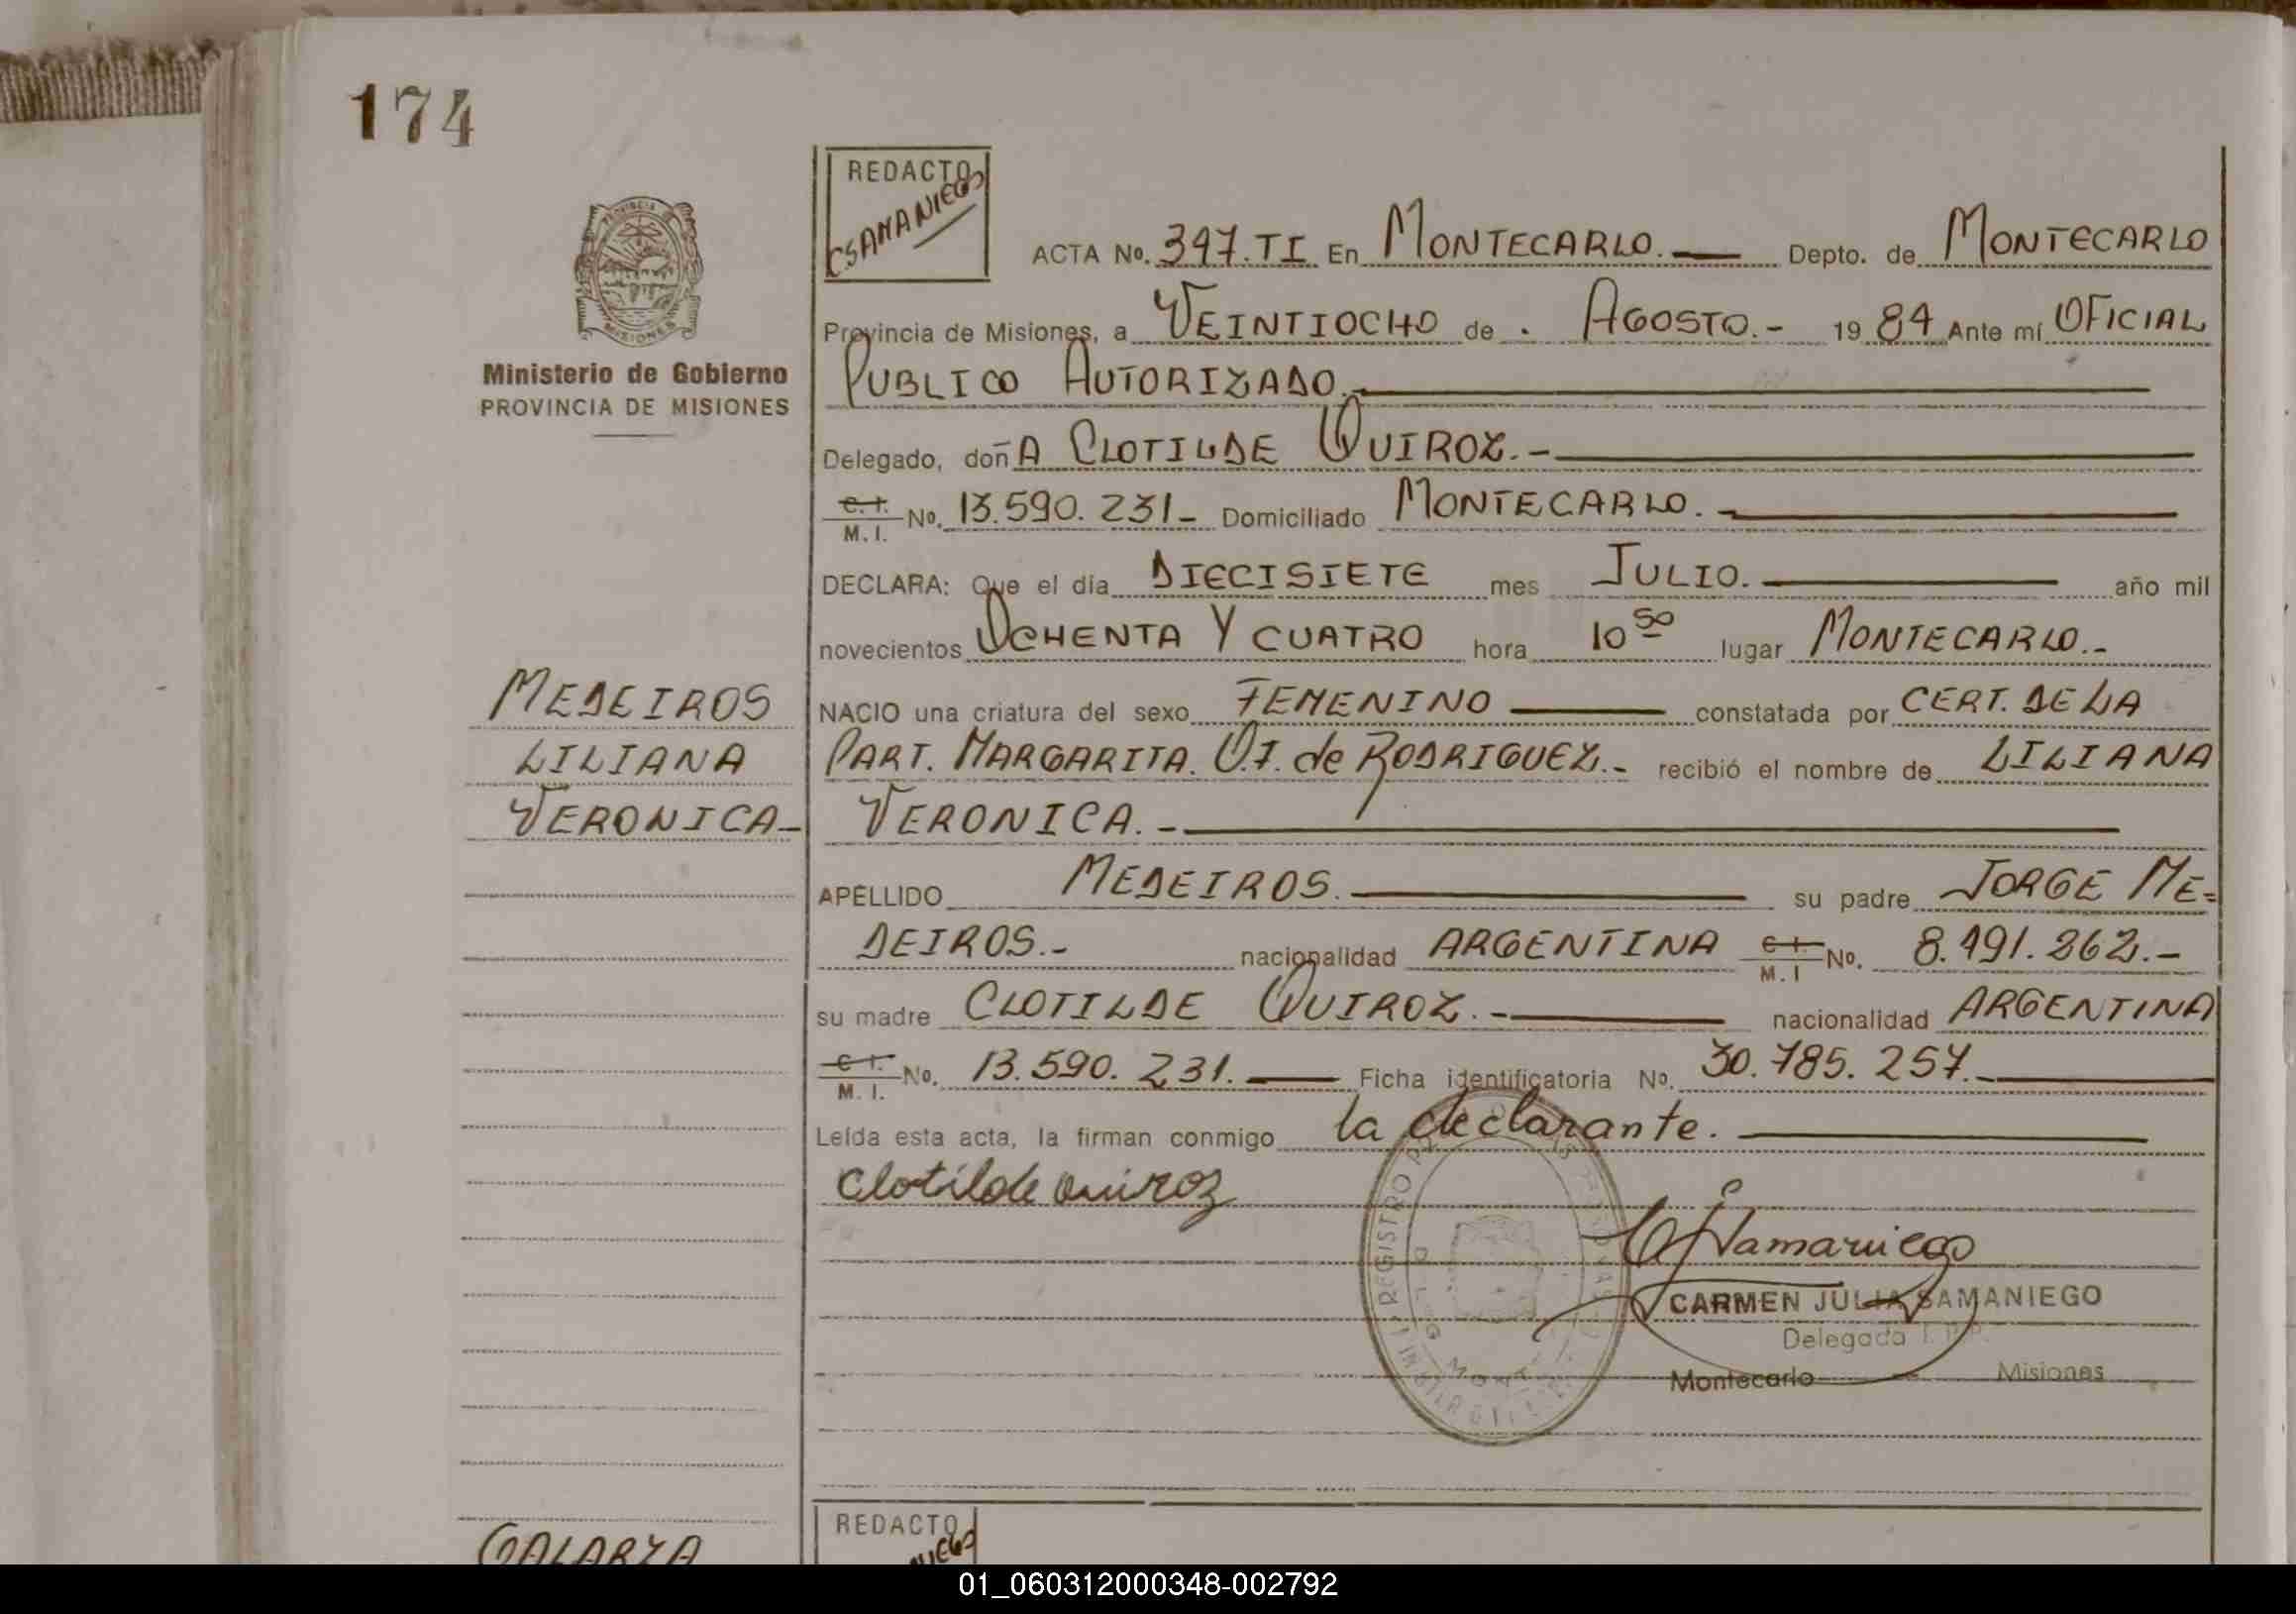 174
REDACTO
CSAMANIEGO
ACTA No. 397.TI En MONTECARLO. Depto. de MONTECARLO
Provincia de Misiones, a VEINTIOCHO de . AGOSTO.- 1984 Ante mí OFICIAL
PUBLICO AUTORIZADO.
Delegado, doñA CLOTILDE QUIROZ.-
C.I. M.I. No. 13.590.231- Domiciliado MONTECARLO.-
DECLARA: Que el día DIECISIETE mes JULIO. año mil
novecientos OCHENTA Y CUATRO hora 10 50 lugar MONTECARLO.-
NACIO una criatura del sexo FEMENINO constatada por CERT. DE LA
PART. MARGARITA. de RODRIGUEZ.- recibió el nombre de LILIANA
VERONICA.-
APELLIDO MEDEIROS. su padre JORGE ME=
DEIROS.- nacionalidad ARGENTINA C.I. M.I No.
su madre CLOTILDE QUIROZ.- nacionalidad ARGENTINA
C.I. M.I. No. 13.590.231. Ficha identificatoria No. 30.785.257.-
Leída esta acta, la firman conmigo la declarante.
Clotilde Quiroz
CSamaniego
CARMEN JULIA SAMANIEGO
Delegada
Montecarlo Misiones
PROVINCIA DE
MISIONES
Ministerio de Gobierno
PROVINCIA DE MISIONES
MEDEIROS
LILIANA
VERONICA-
GALARZA
REDACTO
01_060312000348-002792